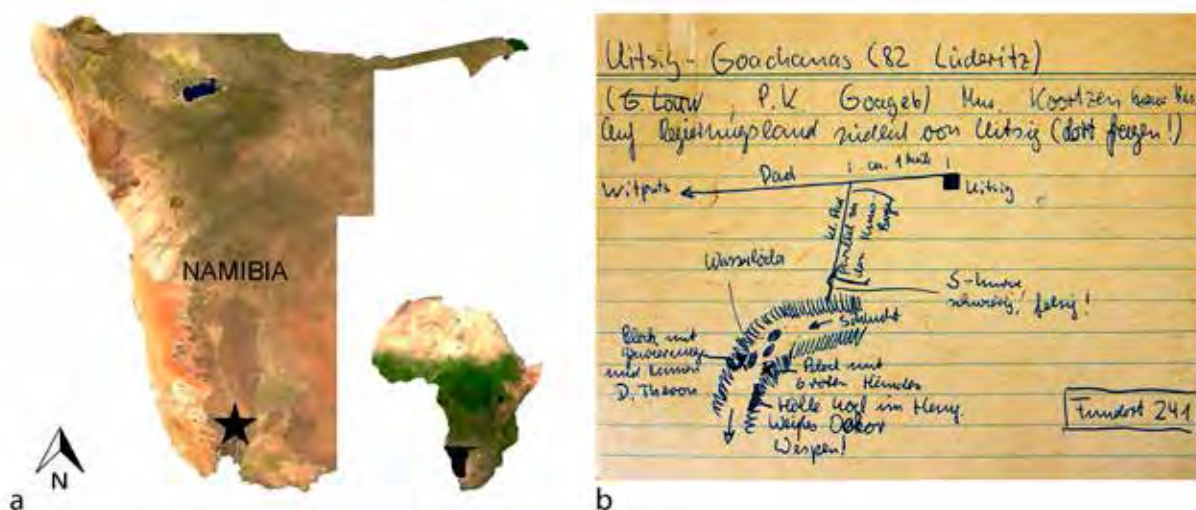 NAMIBIA
N
a
Uitsig - Goachanas (82 Lüderitz)
(G. Louw, P.K. Goageb) Mus. Koortzen
Auf Regierungsland südlich von Uitsig (dort fragen!)
ca. 1 Meile
Witputs
Pad
Uitsig
kl. Pad
parallel zu
den
Wasserlöcher
S-Kurve
schwierig, felsig!
Schlucht
Block mit
Gravierung
und Namen
D. Theron
Block mit
6 roten Händen
Höhle hoch im Hang.
Weißes Dekor
Wespen!
Fundort 241
b